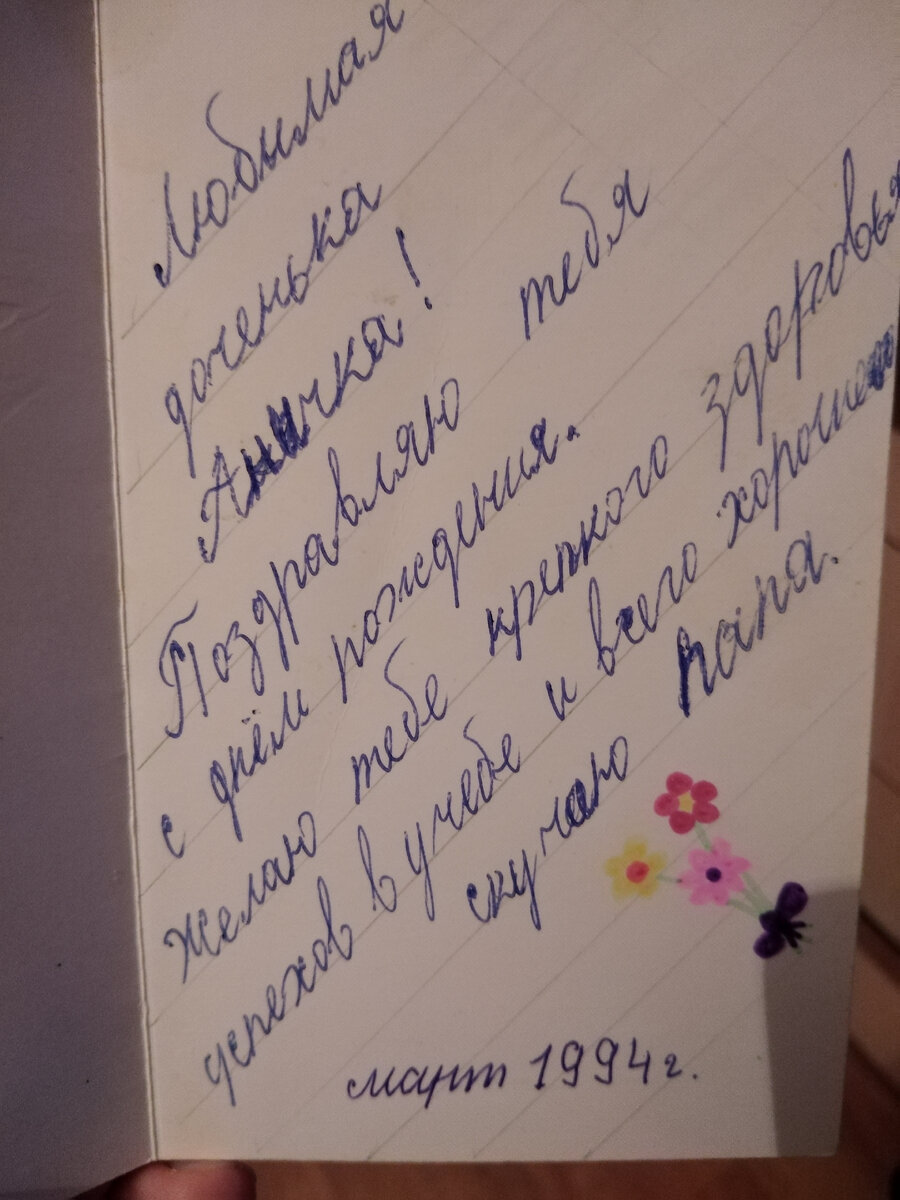 Любимая
доченька
Аничка!
Поздравляю тебя
с днём рождения.
Желаю тебе крепкого здоровья
успехов в учебе и всего хорошего
скучаю папа.
март 1994 г.